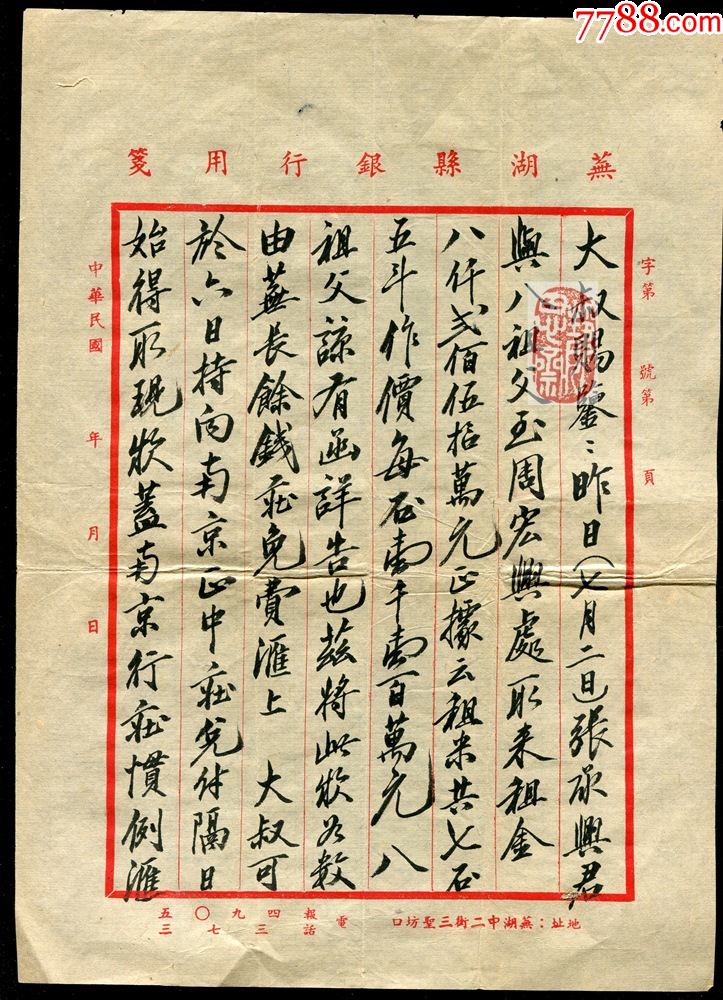 7788.com
蕪湖縣銀行用箋
字第 號第 頁
大叔賜鑒：昨日（七月二日）張承興君
與八祖父至周宏興處取來租金
八仟貳佰伍拾萬元正據云租米共七石
五斗作價每石壹千壹百萬元八
祖父諒有函詳告也茲將此款如數
由蕪長餘錢莊免費滙上 大叔可
於六日持向南京正中莊兌付隔日
始得取現款蓋南京行莊慣例滙
中華民國 年 月 日
地址：蕪湖中二街三聖坊口
電報四九〇五
話三七三